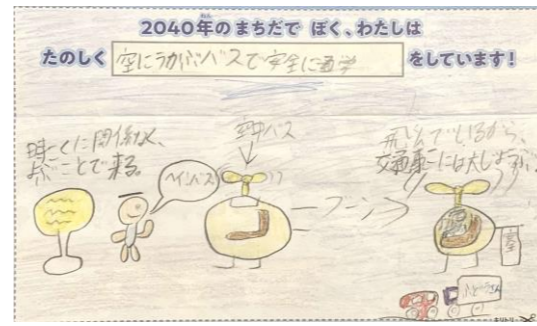 2040年のまちだで ぼく、わたしは
たのしく 空にうかぶバスで安全に通学 をしています!
空中バス
時こくに関係なく、
よぶことで来る。
ヘイ!バス!
飛んでいるから、
交通事こには大しょうぶ。